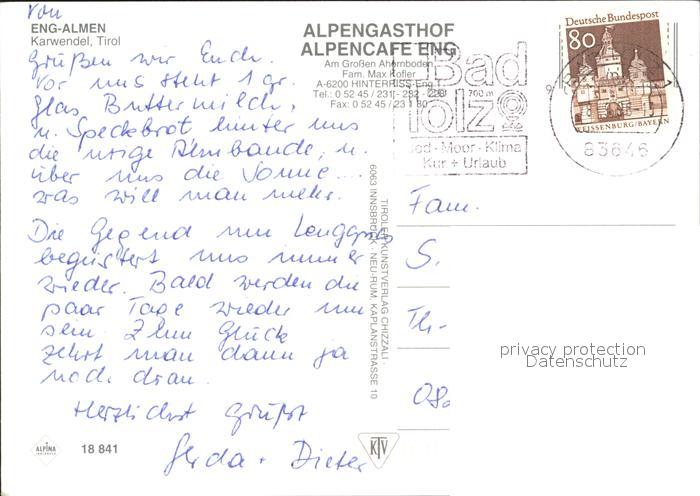 von
ENG-ALMEN
Karwendel, Tirol
Grüßen wir Euch.
Vor uns steht 1 gr.
Glas Buttermilch,
u. Speckbrot hinter uns
die urige Almbande, u.
über uns die Sonne....
was will man mehr.
Die Gegend um Lenggries
begeistert uns immer
wieder. Bald werden die
paar Tage wieder um
sein. Zum Glück
zehrt man dann ja
noch dran.
Herzlichst grüßt
Gerda + Dieter
ALPINA
18 841
ALPENGASTHOF
ALPENCAFE ENG
Am Großen Ahornboden
Fam. Max Kofler
A-6200 HINTERRISS-Eng
Tel.: 0 52 45 / 231, 232
Fax: 0 52 45 / 23 1 80
TIROLER KUNSTVERLAG CHIZZALI ·
6063 INNSBRUCK · NEU-RUM, KAPLANSTRASSE 10
KTV
Bad
Tölz
700 m
Jod · Moor · Klima
Kur + Urlaub
Deutsche Bundespost
80
WEISSENBURG/BAYERN
83646
Fam.
S.
Th-
privacy protection
Datenschutz